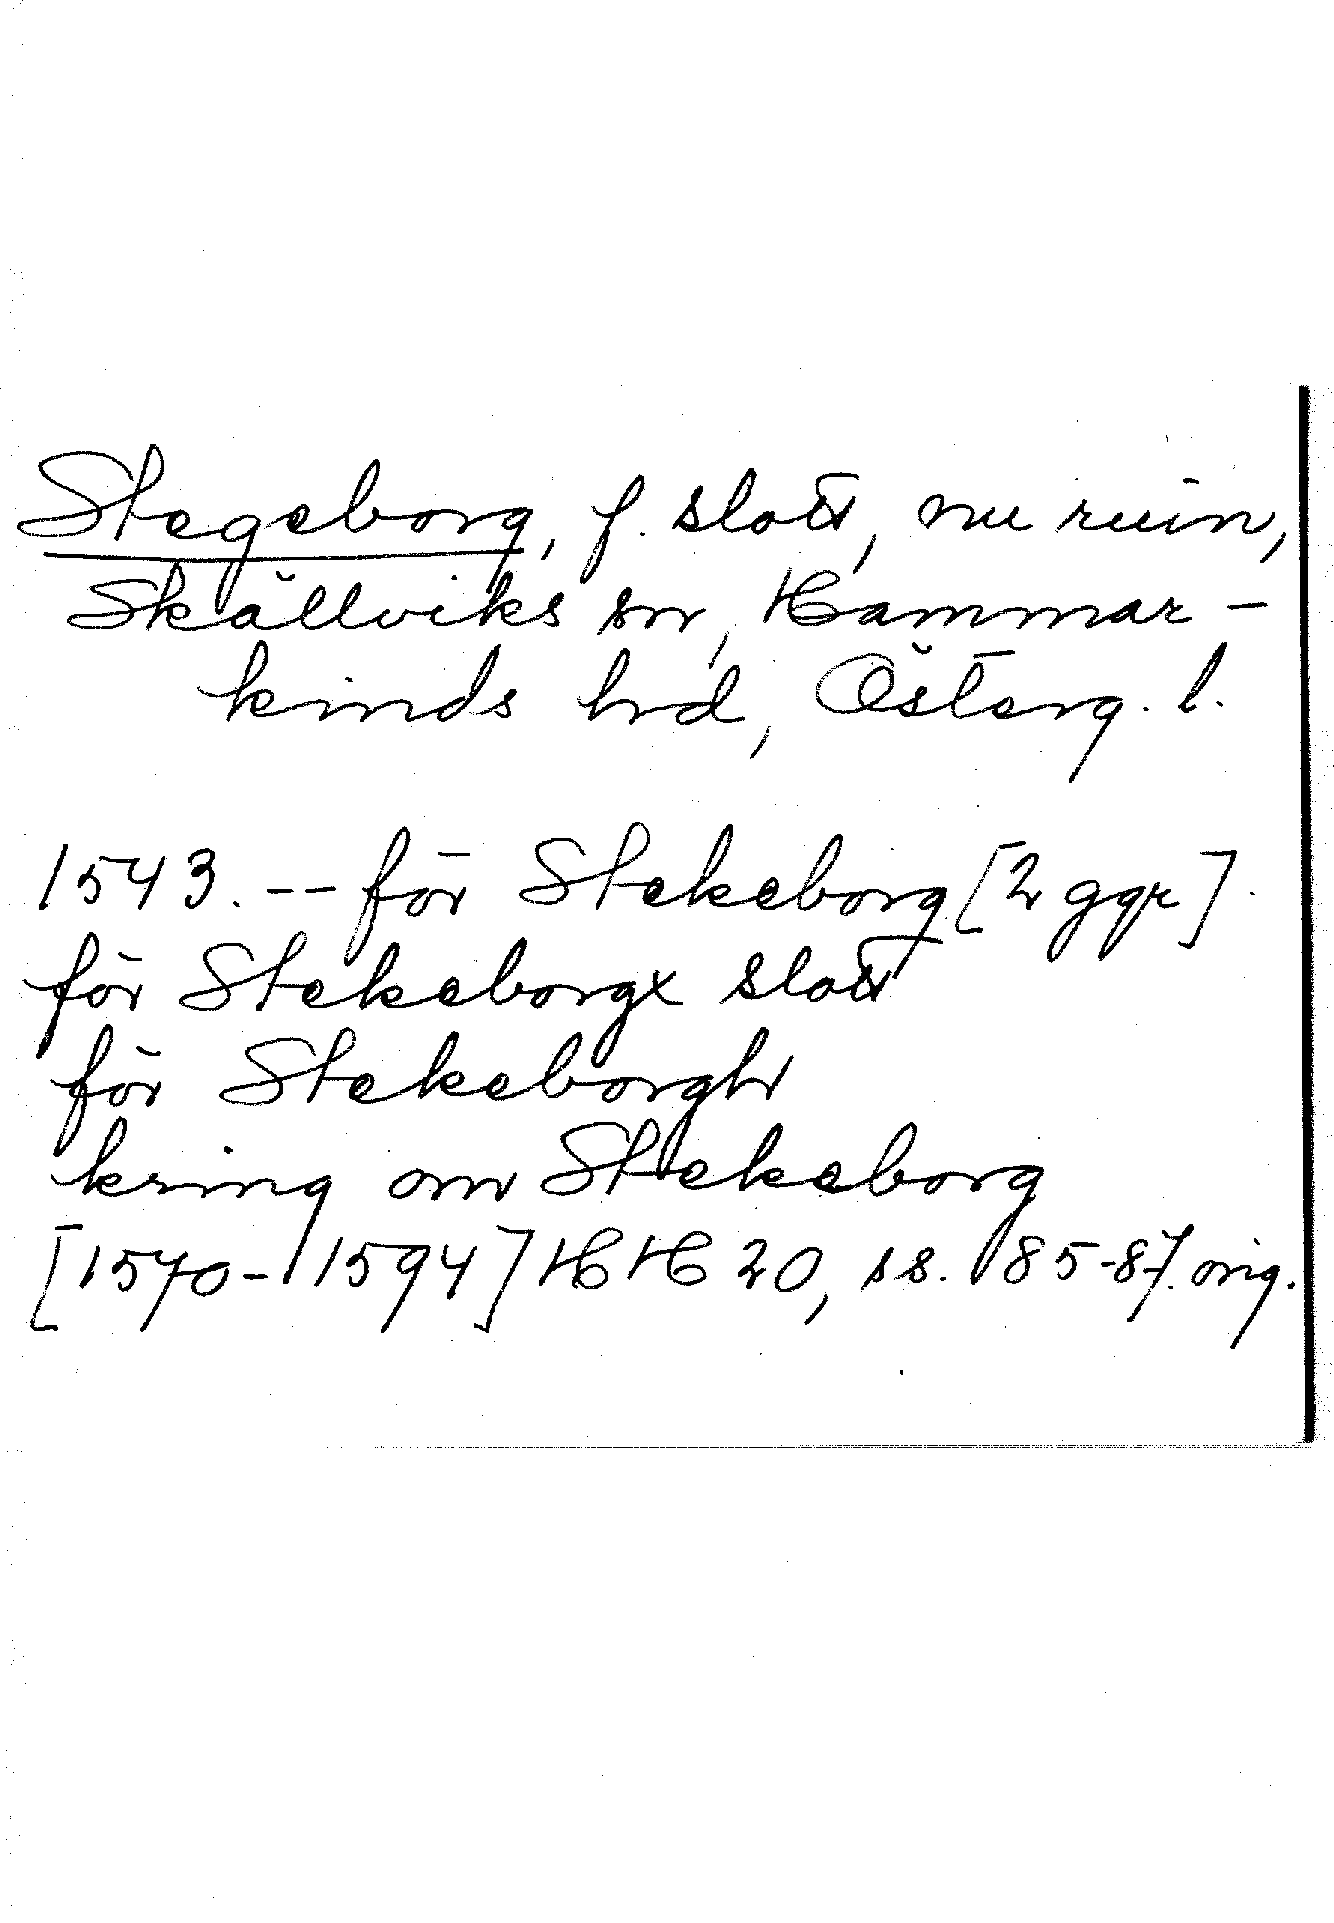 Stegeborg, f. slott, nu ruin,
Skällviks sn, Hammar-
kinds hd, Österg. l.
1543. -- för Stekeborg [2 ggr].
för Stekeborgx slott
för Stekeborgh
kring om Stekeborg
[1570-1594] HH 20, ss. 185-87. orig.